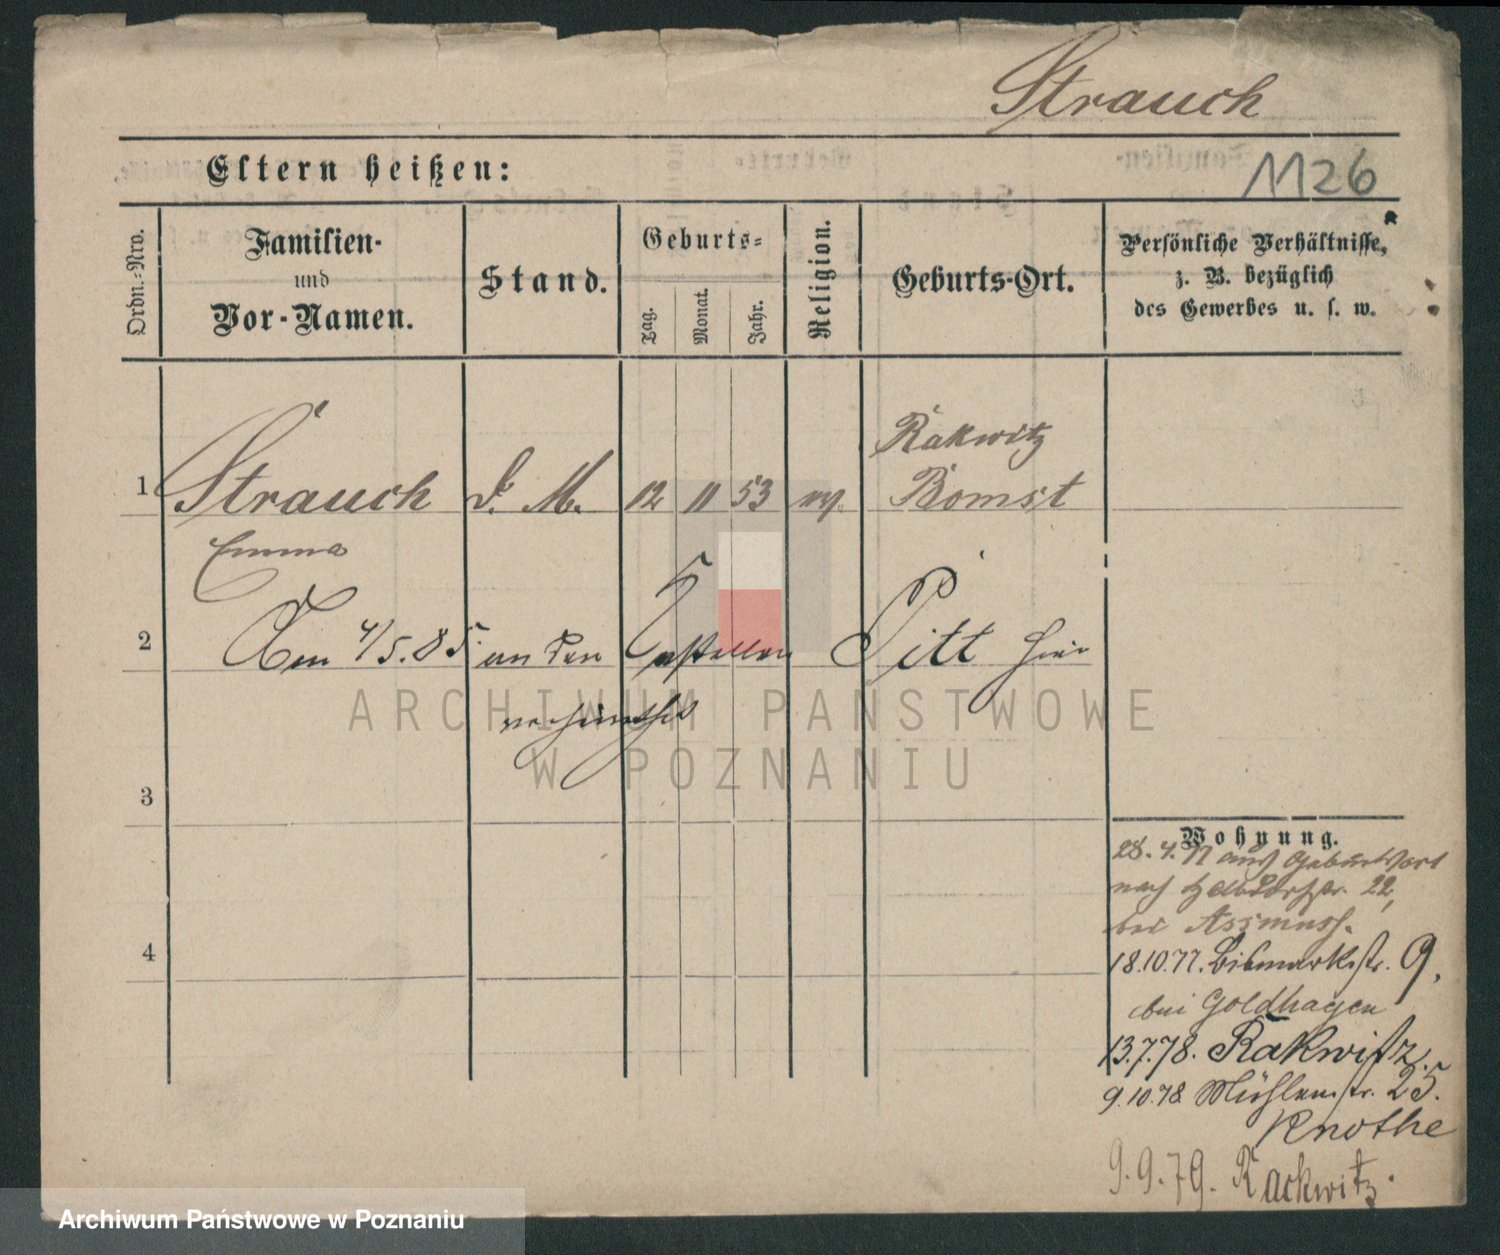 Strauch
Eltern heißen:
1126
Ordn.-Nro.
Familien-
und
Vor-Namen.
Stand.
Geburts-
Tag.
Monat.
Jahr.
Religion.
Geburts-Ort.
Persönliche Verhältnisse,
z. B. bezüglich
des Gewerbes u. s. w.
Rakwitz
1 Strauch d. M. 12 11 53 Bomst
Emma
2 Am 4/5.85. an den Pitt hier
verheirathet
ARCHIWUM PAŃSTWOWE
W POZNANIU
3
4
Wohnung.
28.4.77 aus Geburtsort
nach Halbdorfstr. 22,
bei Assmuss.
18.10.77. Bismarkstr. 9,
bei Goldhagen
13.7.78. Rakwitz.
9.10.78 Mühlenstr. 25.
Knothe
9.9.79. Rackwitz.
Archiwum Państwowe w Poznaniu